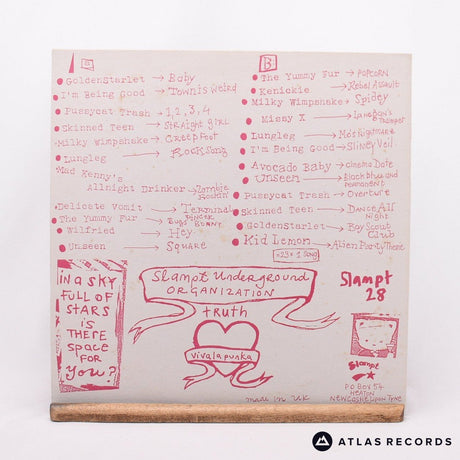 A
GoldenStarlet → Baby
I'm Being Good → Town is Weird
Pussycat Trash → 1,2,3,4
Skinned Teen → STRAIGHT GIRL
Milky Wimpshake → Creep Feet
Lungleg → Rock Song
Mad Kenny's
Allnight Drinker → Zombie
Delicate Vomit → Terminal
The Yummy Fur →
Wilfried → Hey
Unseen → Square
B
The Yummy Fur → POPCORN
Kenickie → Rebel Assault
Milky Wimpshake → Spidey
Missy X →
Lungleg → Mo's Nightmare
I'm Being Good → Slivey Veil
Avocado Baby → Cinema Date
Unseen → Black blue and
permanent
Pussycat Trash → Overture
Skinned Teen → Dance All
Night
GoldenStarlet → Boy Scout
Club
Kid Lemon → Alien Party Theme
=23x 1 Song
in a SKY
FULL OF
STARS
is
THERE
SPACE
FOR
You?
Slampt Underground
ORGANIZATION
truth
viva la punka
Slampt
28
Slampt
P O Box 54
HEATON
NEWCASTLE Upon Tyne
made in UK
ATLAS RECORDS